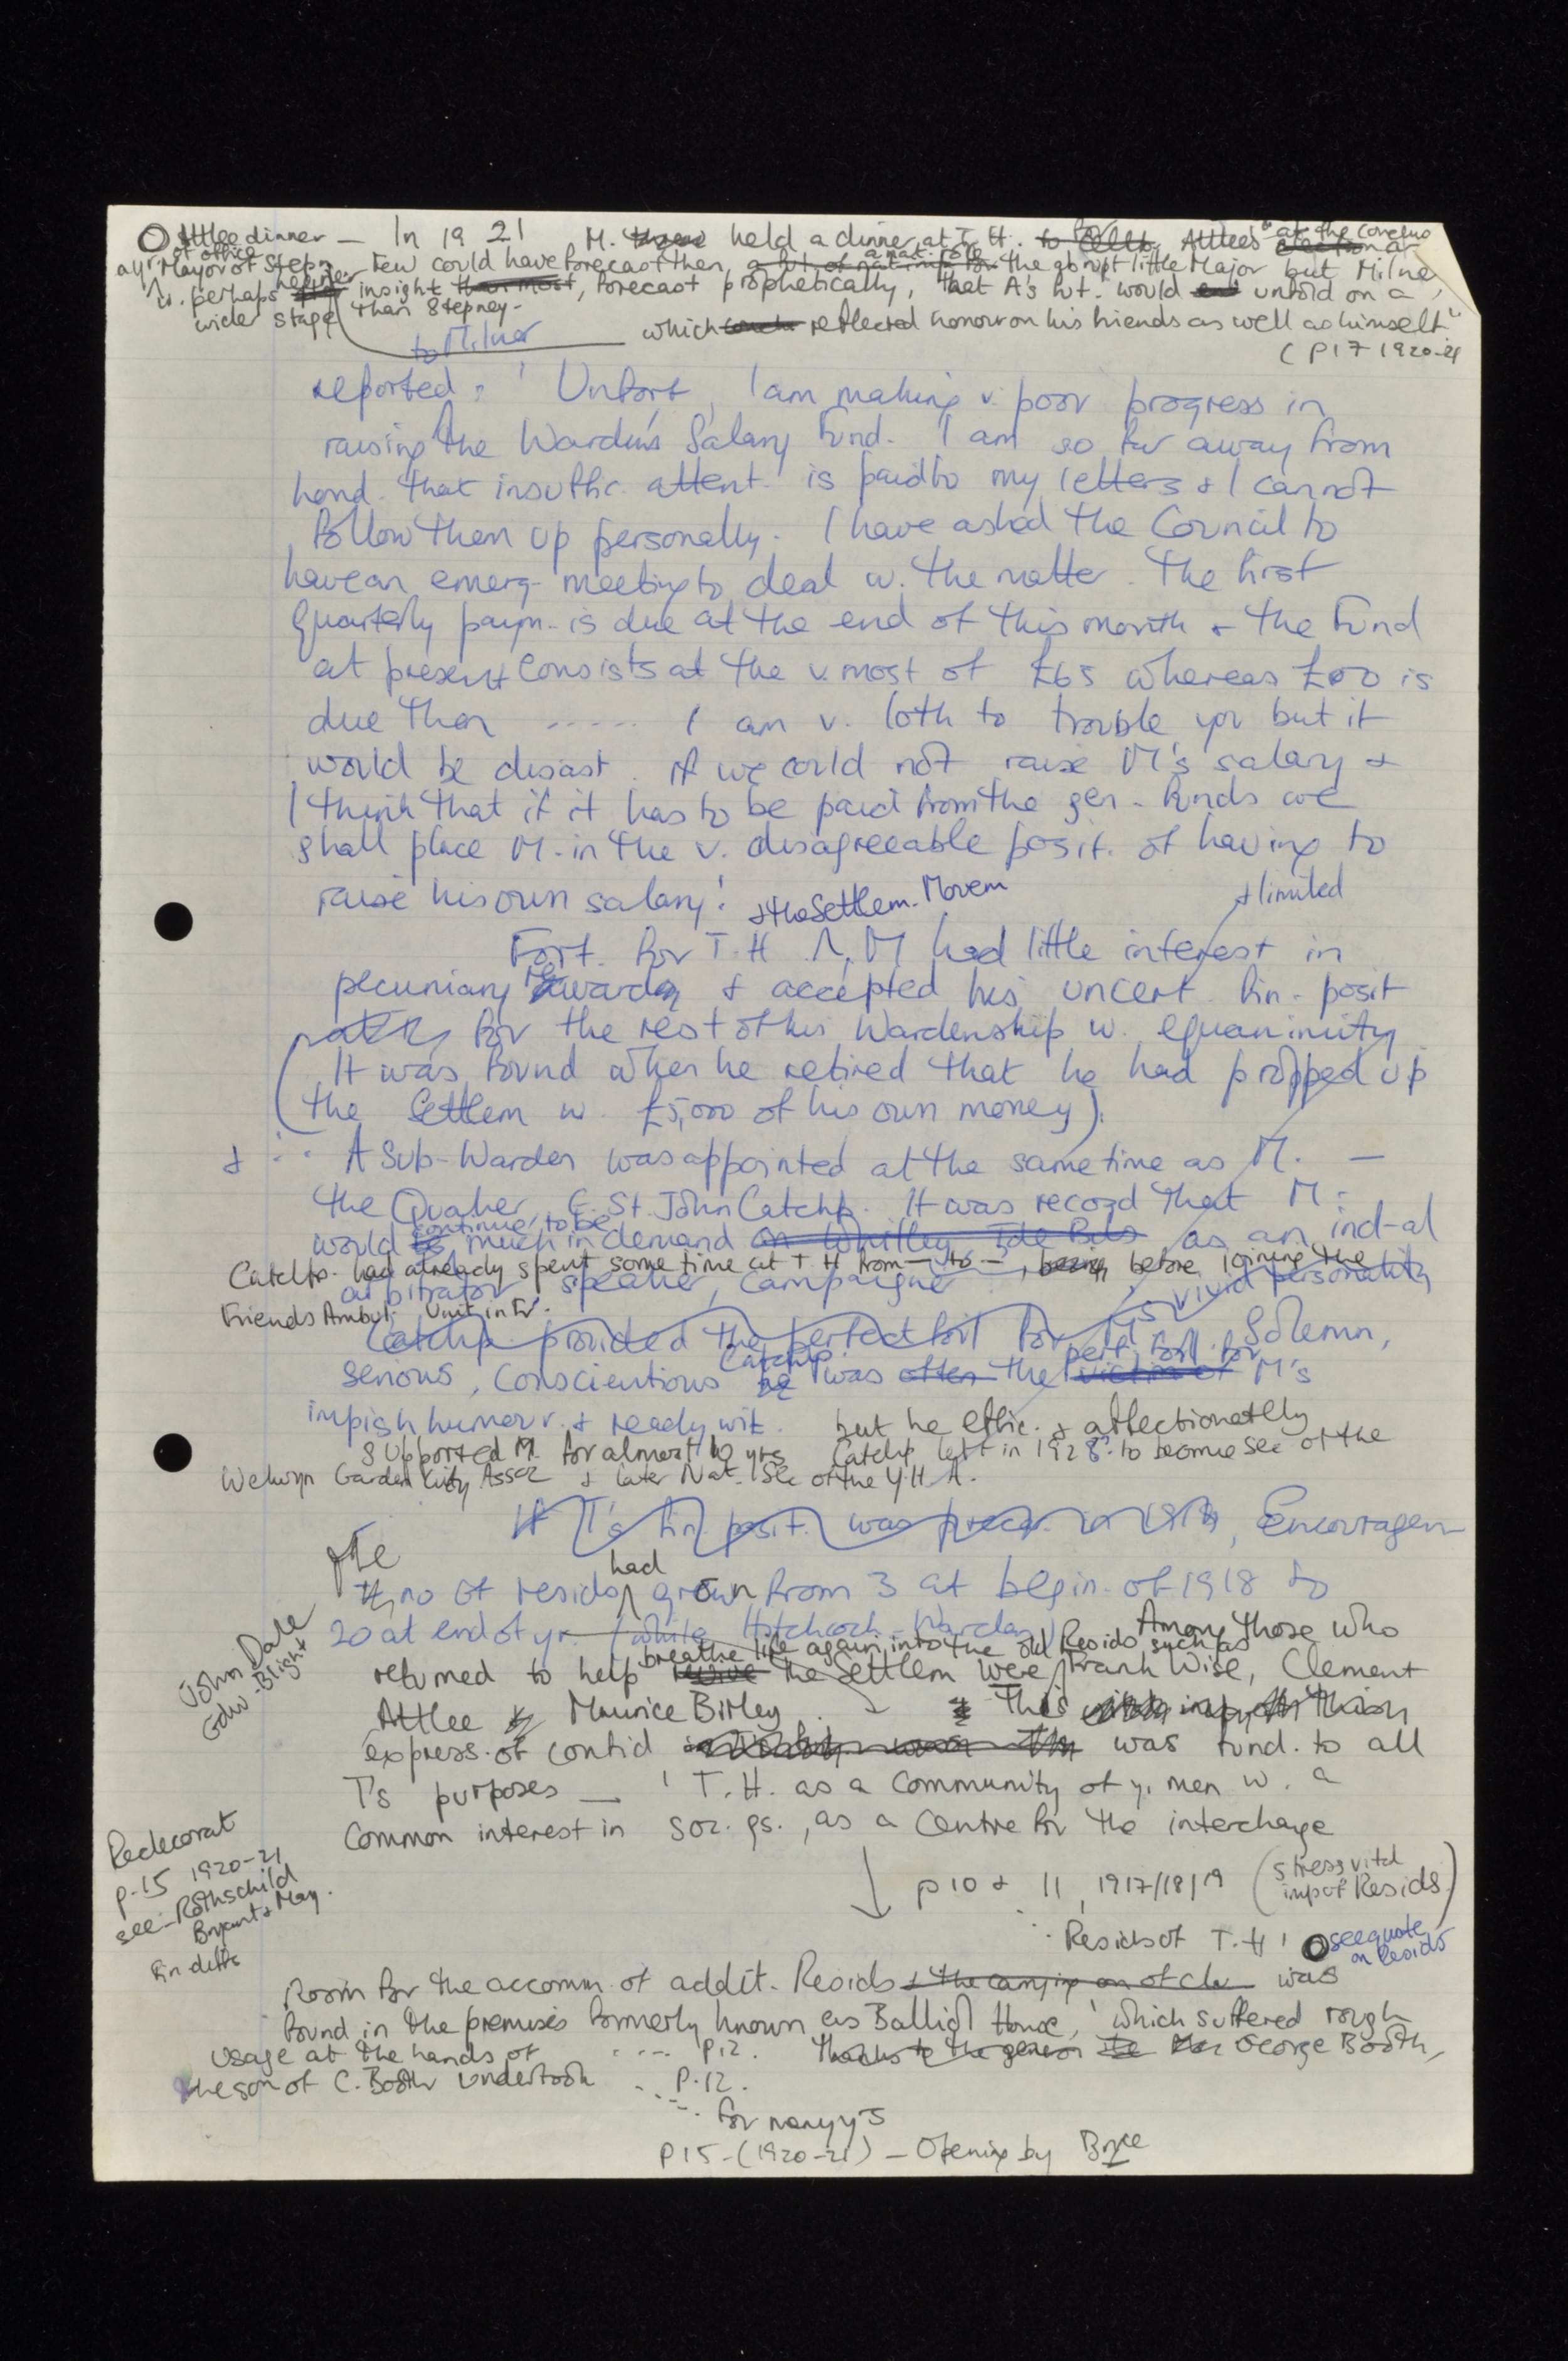 O Attlee dinner — In 1921 M. held a dinner at T.H. for Attlee's "at the close of
of office
a yr Mayor of Stepn. Few could have forecast then, a nat. role for the abrupt little Major but Milner,
w. perhaps keener insight than most, forecast prophetically, that A's fut. would unfold on a
wider stage than Stepney -
which reflected honour on his friends as well as himself"
(P17 1920-21
to Milner
reported, 'Unfort, I am making v. poor progress in
raising the Warden's Salary Fund. I am so far away from
hond. that insuffic. attent. is paid to my letters & I cannot
follow them up personally. I have asked the Council to
have an emerg. meeting to deal w. the matter. The first
Quarterly paym. is due at the end of this month & the Fund
at present consists at the v. most of £65 whereas is
due then ..... I am v. loth to trouble you but it
would be disast. if we could not raise M's salary &
I think that if it has to be paid from the gen. funds we
shall place M. in the v. disagreeable posit. of having to
raise his own salary!'
& the Settlem. Movem
& limited
Fort. for T.H , M had little interest in
pecuniary rewards & accepted his uncert. fin. posit
for the rest of his Wardenship w. equanimity
(It was found when he retired that he had propped up
the Settlem w. £5,000 of his own money).
& ∴ A Sub-Warden was appointed at the same time as M. —
the Quaker, E. St. John Catchp. It was record that M.
continue to be
would be much in demand on Whitley Ide Bds as an ind-al
Catchp. had already spent some time at T.H from — to —, being before joining the
arbitrator, speaker, campaigne
Friends Ambul. Unit in Fr.
Catchp provided the perfect foil for M's vivid personality
Solemn,
serious, conscientious he Catchp. was often the victim of perf. foil for M's
impish humour & ready wit. but he effic. & affectionately
supported M. for almost 10 yrs Catchp left in 1928? to become sec of the
Welwyn Garden City Assoc & later Nat. Sec of the Y.H.A.
If T's fin. posit. was precar. in 1919, Encouragem
The
no of resids had grown from 3 at begin. of 1918 to
20 at end of yr. (while Hitchcock Warden) Among those who
breathe life again into the old Resids such as
returned to help revive the Settlem were Frank Wise, Clement
Attlee & Maurice Birley. This
express. of confid was fund. to all
T's purposes — 'T.H. as a Community of y. men w. a
common interest in soc. qs., as a Centre for the interchange
↓ p 10 & 11, 1917/18/19 (stress vital
imp of Resids)
Resids of T.H' O see quote
on Resids
John Dale
Edw. Blight
Redecorat
p.15 1920-21
see - Rothschild
Bryant & May.
fin diffs
Room for the accomm. of addit. Resids & the carrying on of clu was
found in the premises formerly known as Balliol House, 'which suffered rough
usage at the hands of .... P.12. Thanks to the George Booth,
the son of C. Booth undertook .... P.12.
for many yrs
P15 - (1920-21) — Opening by Bryce